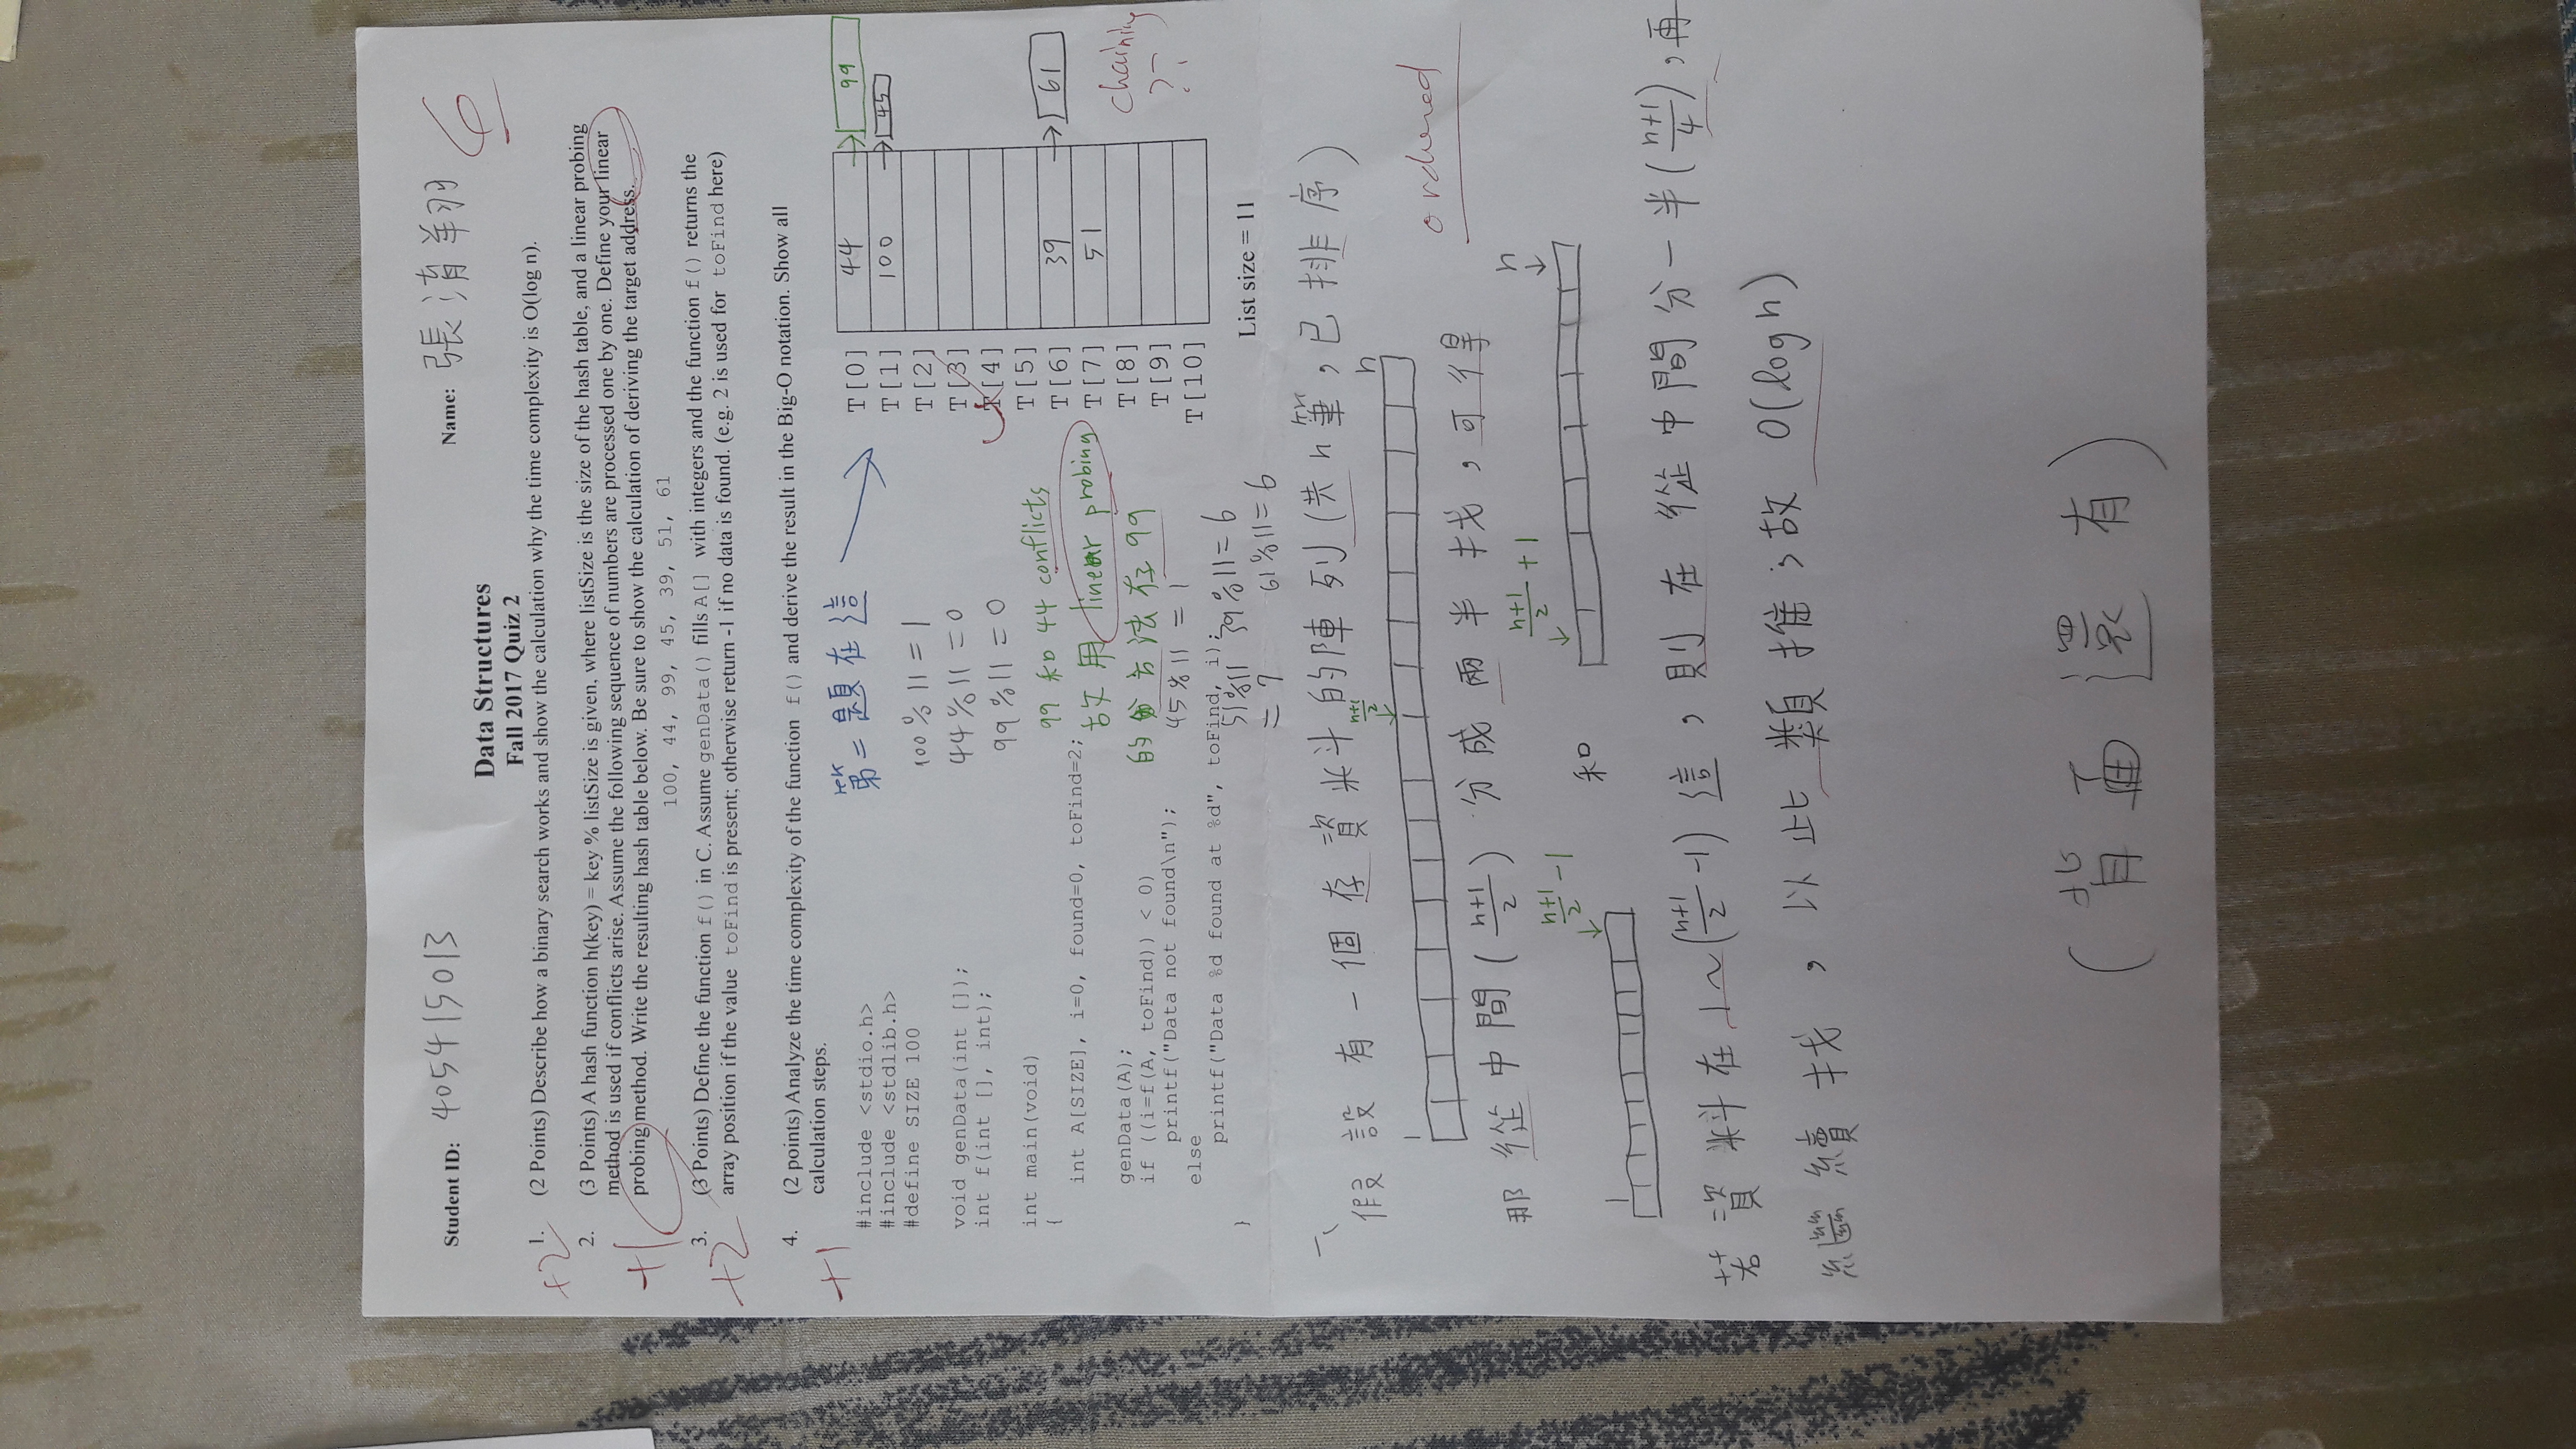 Student ID: 405415013
Name: 張清翔 6
Data Structures
Fall 2017 Quiz 2
+2 1. (2 Points) Describe how a binary search works and show the calculation why the time complexity is O(log n).
2. (3 Points) A hash function h(key) = key % listSize is given, where listSize is the size of the hash table, and a linear probing
method is used if conflicts arise. Assume the following sequence of numbers are processed one by one. Define your linear
+1 probing method. Write the resulting hash table below. Be sure to show the calculation of deriving the target address.
100, 44, 99, 45, 39, 51, 61
3. (3 Points) Define the function f() in C. Assume genData() fills A[] with integers and the function f() returns the
+2 array position if the value toFind is present; otherwise return -1 if no data is found. (e.g. 2 is used for toFind here)
4. (2 points) Analyze the time complexity of the function f() and derive the result in the Big-O notation. Show all
+1 calculation steps.
#include <stdio.h>
#include <stdlib.h>
#define SIZE 100
void genData(int []);
int f(int [], int);
int main(void)
{
int A[SIZE], i=0, found=0, toFind=2;
genData(A);
if ((i=f(A, toFind)) < 0)
printf("Data not found\n");
else
printf("Data %d found at %d", toFind, i);
}
第二題在這
100%11=1
44%11=0
99%11=0
99 和 44 conflicts
故用 linear probing
的方法存99
45%11=1
51%11 39%11=6
=7 61%11=6
T[0] 44 → 99
T[1] 100 → 45
T[2]
T[3]
T[4]
T[5]
T[6] 39 → 61
T[7] 51
T[8]
T[9]
T[10]
chaining
??
List size = 11
一、
假設有一個存資料的陣列(共n筆,已排序)
1 n+1/2 n
ordered
那從中間(n+1/2)分成兩半找,可得
1 n+1/2 -1 和 n+1/2 +1 n
若資料在1~(n+1/2 -1)這,則在從中間分一半(n+1/4),再
繼續找,以此類推,故 O(log n)
(背面還有)